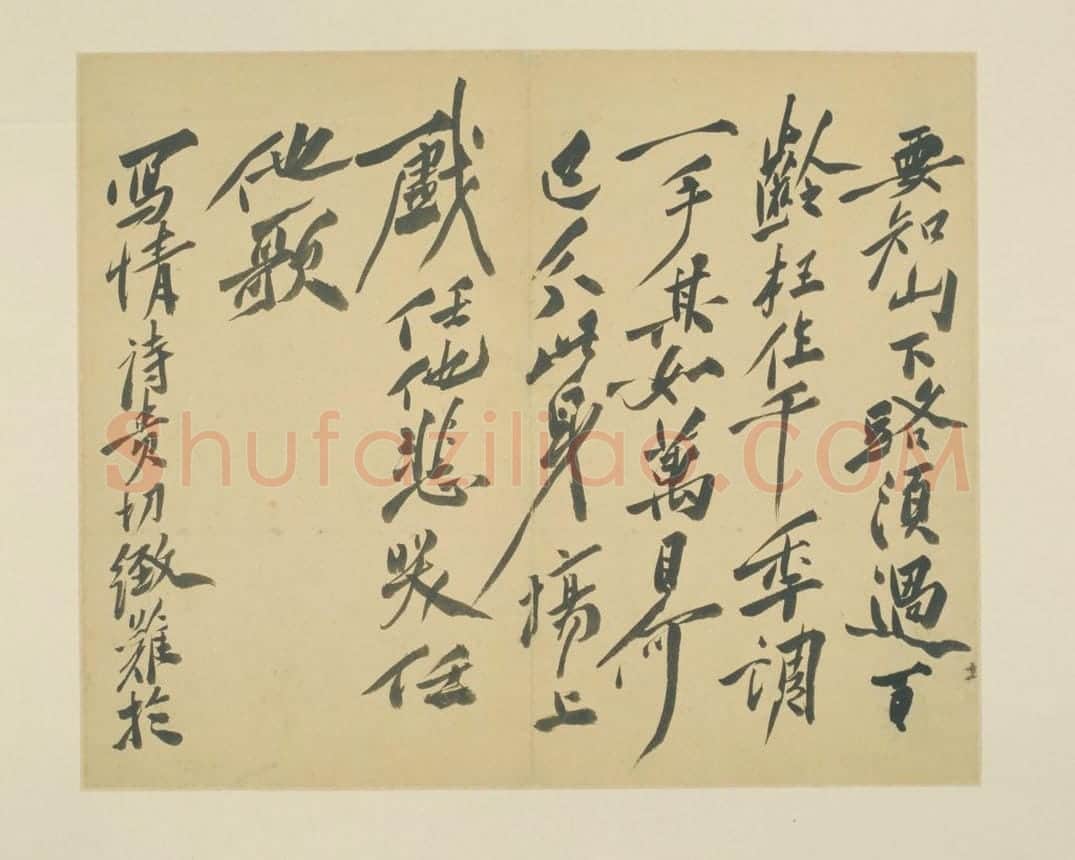 要知山下路須過百
齡枉作千秊調
一手其如萬目何
已分此身場上
戲任他悲咲任
他歌
寫情詩貴切緻難於
Shufaziliao.COM